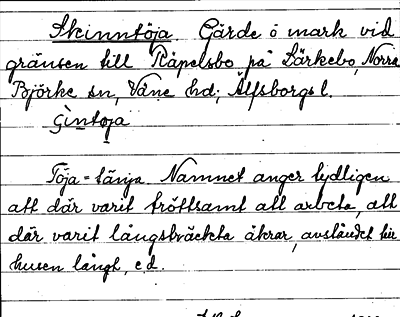 Skinntöja Gärde o mark vid
gränsen till Råpelsbo på Lärkebo, Norra
Björke sn, Väne hd; Älfsborgs l.
Gintöja
Töja = tänja Namnet anger tydligen
att där varit tröttsamt att arbeta, att
där varit långsträckta åkrar, avståndet till
husen långt, e d.